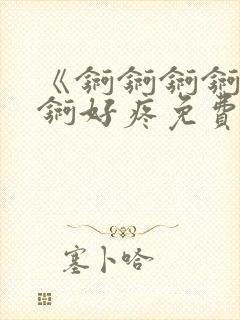 《锕锕锕锕
锕好疼免費
塞卜哈